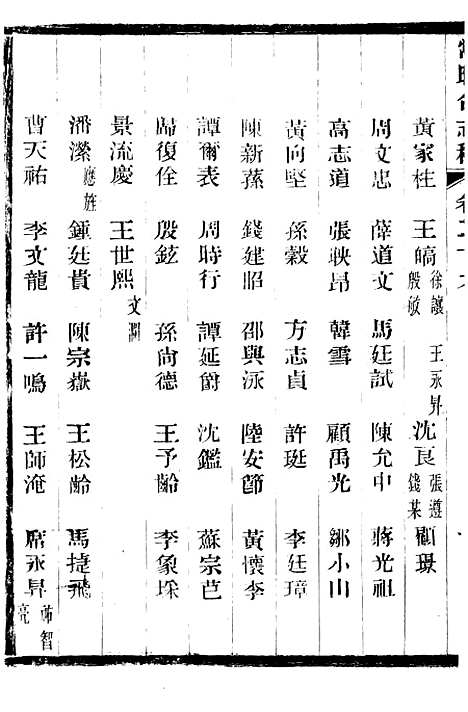 黃家柱 王皜 徐讓 殷敏 王永昇 沈良 張遵 錢某 顧璟
周文忠 薛道文 馬廷試 陳允中 蔣光祖
高志道 張映昂 韓雪 顧禹光 鄒小山
黃向堅 孫穀 方志貞 許珽 李廷璋
陳新蓀 錢建昭 邵與泳 陸安節 黃懷李
譚爾表 周時行 譚延爵 沈鑑 蘇宗芑
歸復佺 殷鉉 孫尚德 王予齡 李象琛
景流慶 王世熙 文瀾
潘瀠 應旌 鍾廷貴 陳宗嶽 王松齡 馬捷飛
曹天祐 李文龍 許一鳴 王師淹 席永昇 師智 亮